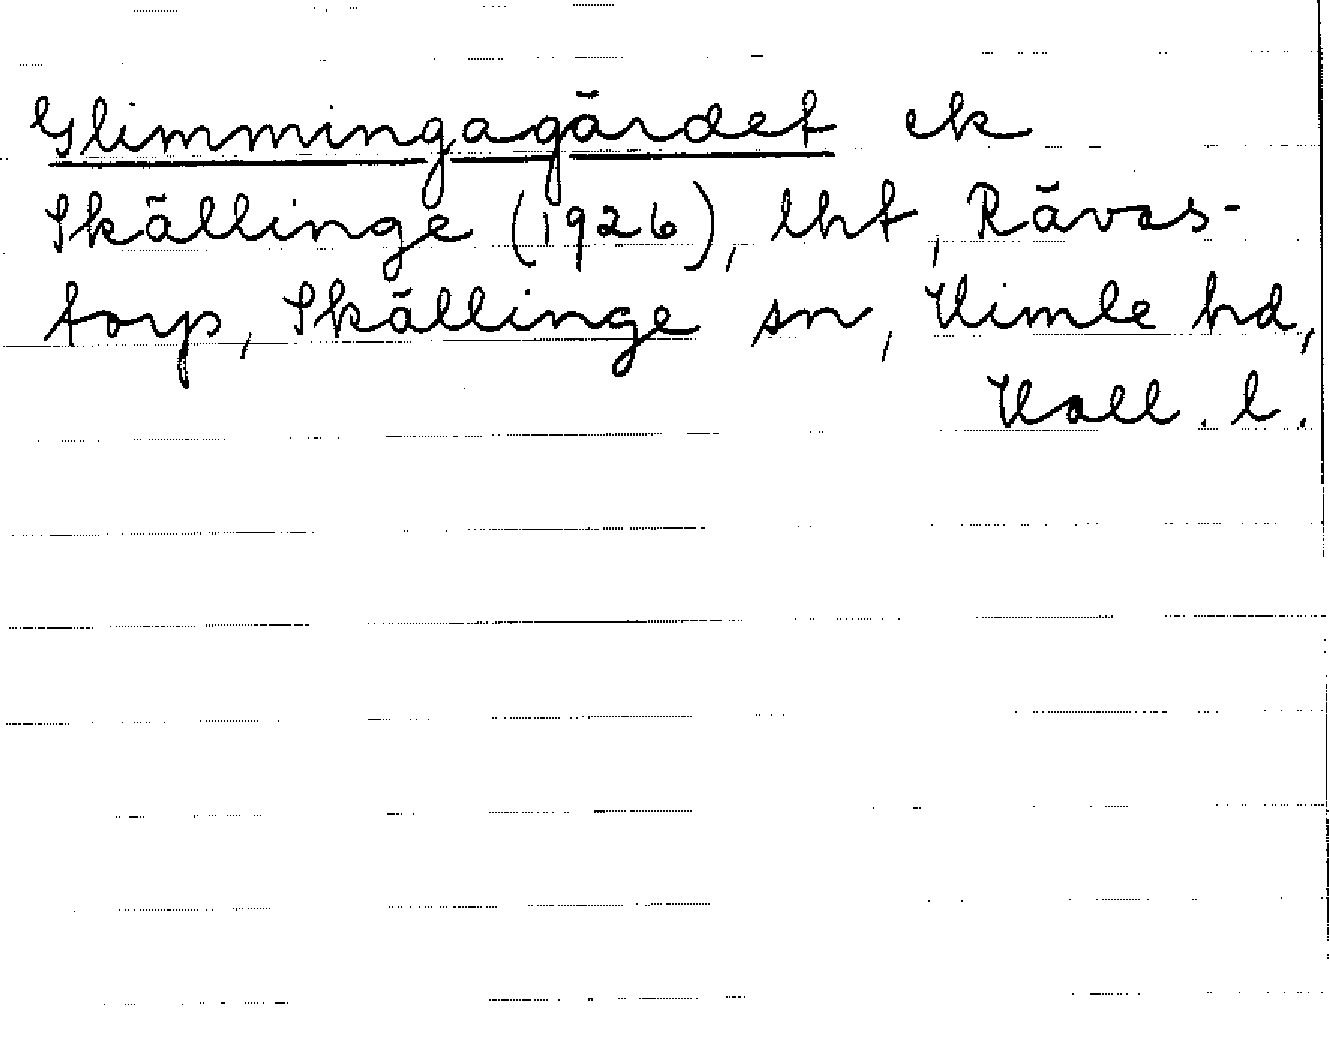 Glimmingagärdet ek
Skällinge (1926), lht, Rävas-
torp, Skällinge sn, Himle hd,
Hall. l.